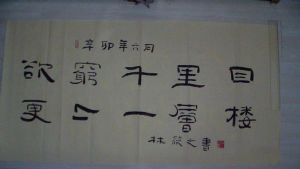 辛卯年六月
欲窮千里目
更上一層楼
林 之書